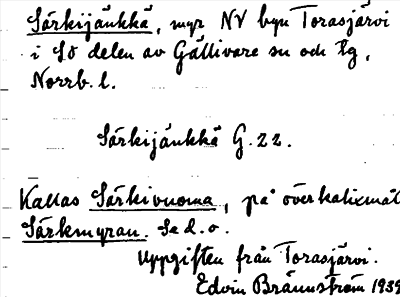 Särkijänkkä, myr NV byn Torasjärvi
i SO delen av Gällivare sn och tg,
Norrb. l.
Särkijänkkä G. 22.
Kallas Särkivuoma, på överkalixmål
Särkmyran. Se d. o.
Uppgiften från Torasjärvi.
Edvin Brännström 1939